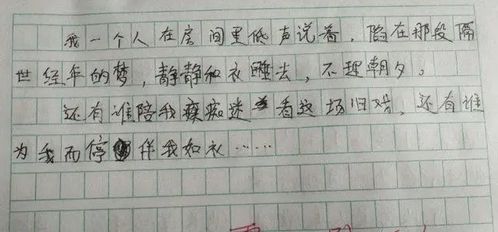 我一个人在房间里低声说着,陷在那段隔
世经年的梦,静静和衣睡去,不理朝夕。
还有谁陪我痴迷看这场旧婚,还有谁
为我而停 伴我如衣……